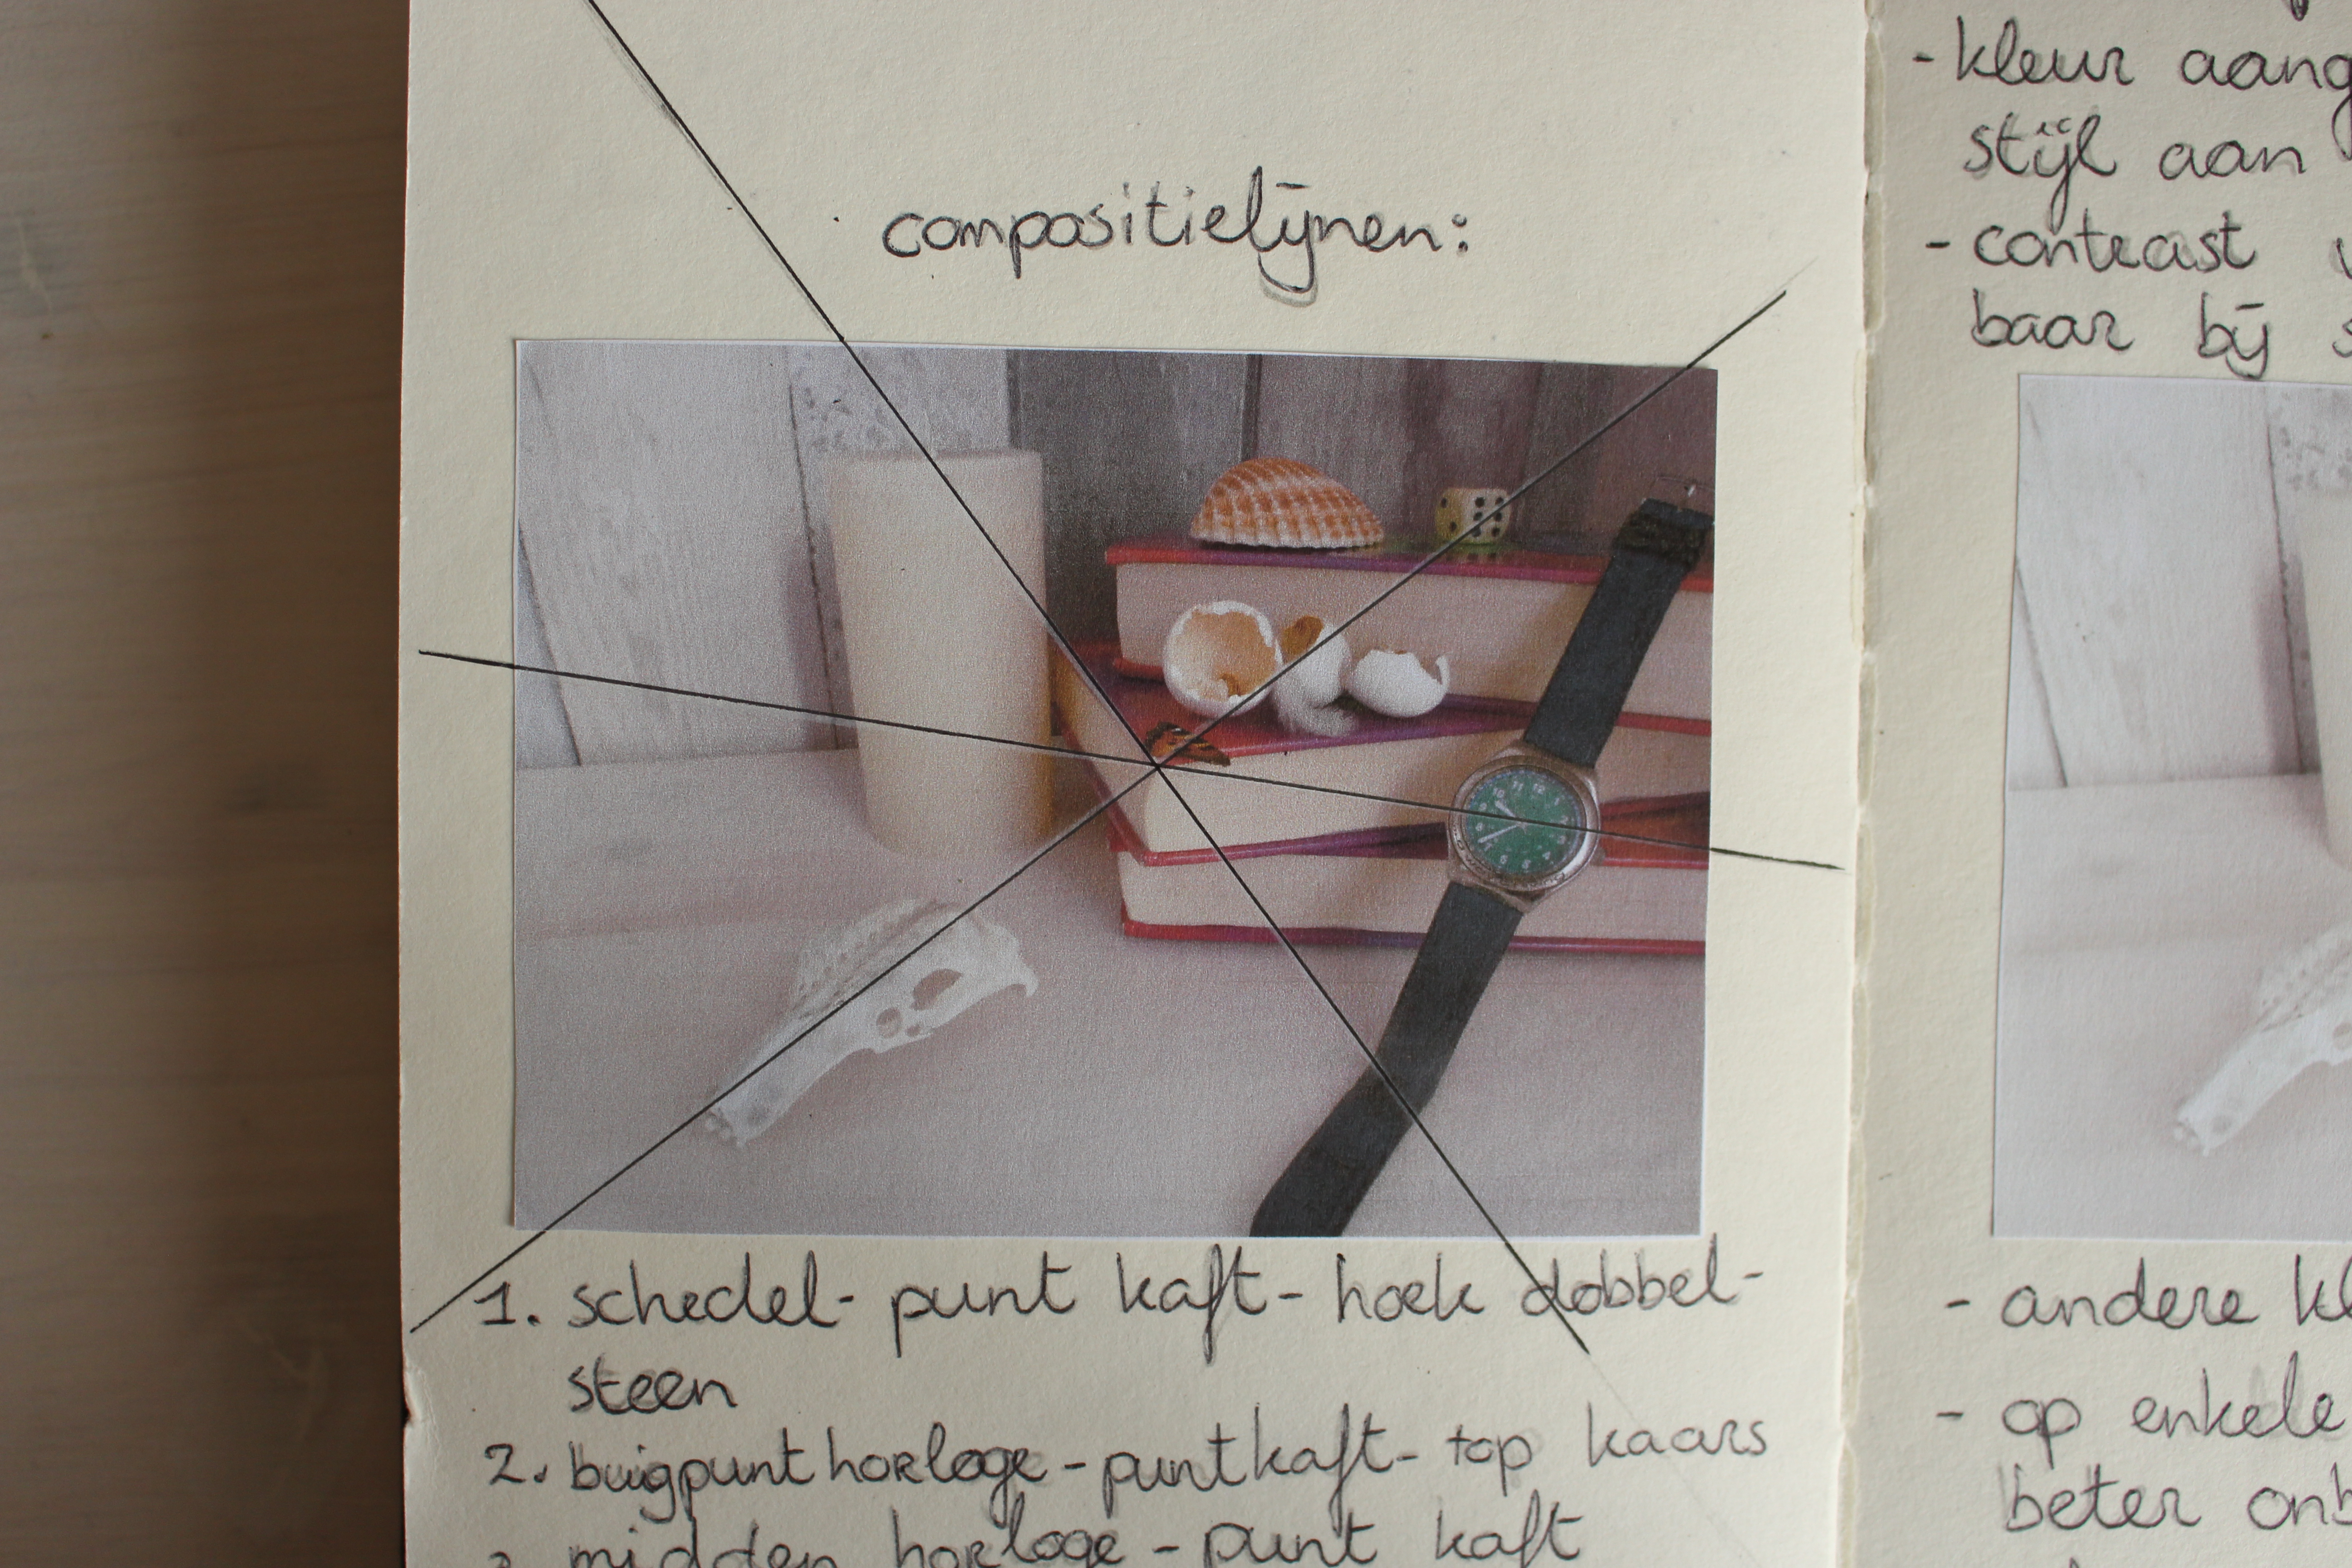 compositielijnen:
1. schedel - punt kaft - hoek dobbel-
steen
2. buigpunt horloge - punt kaft - top kaars
midden horloge - punt kaft
- kleur
stijl aan
- contrast
baar bij
- andere
- op enkele
beter